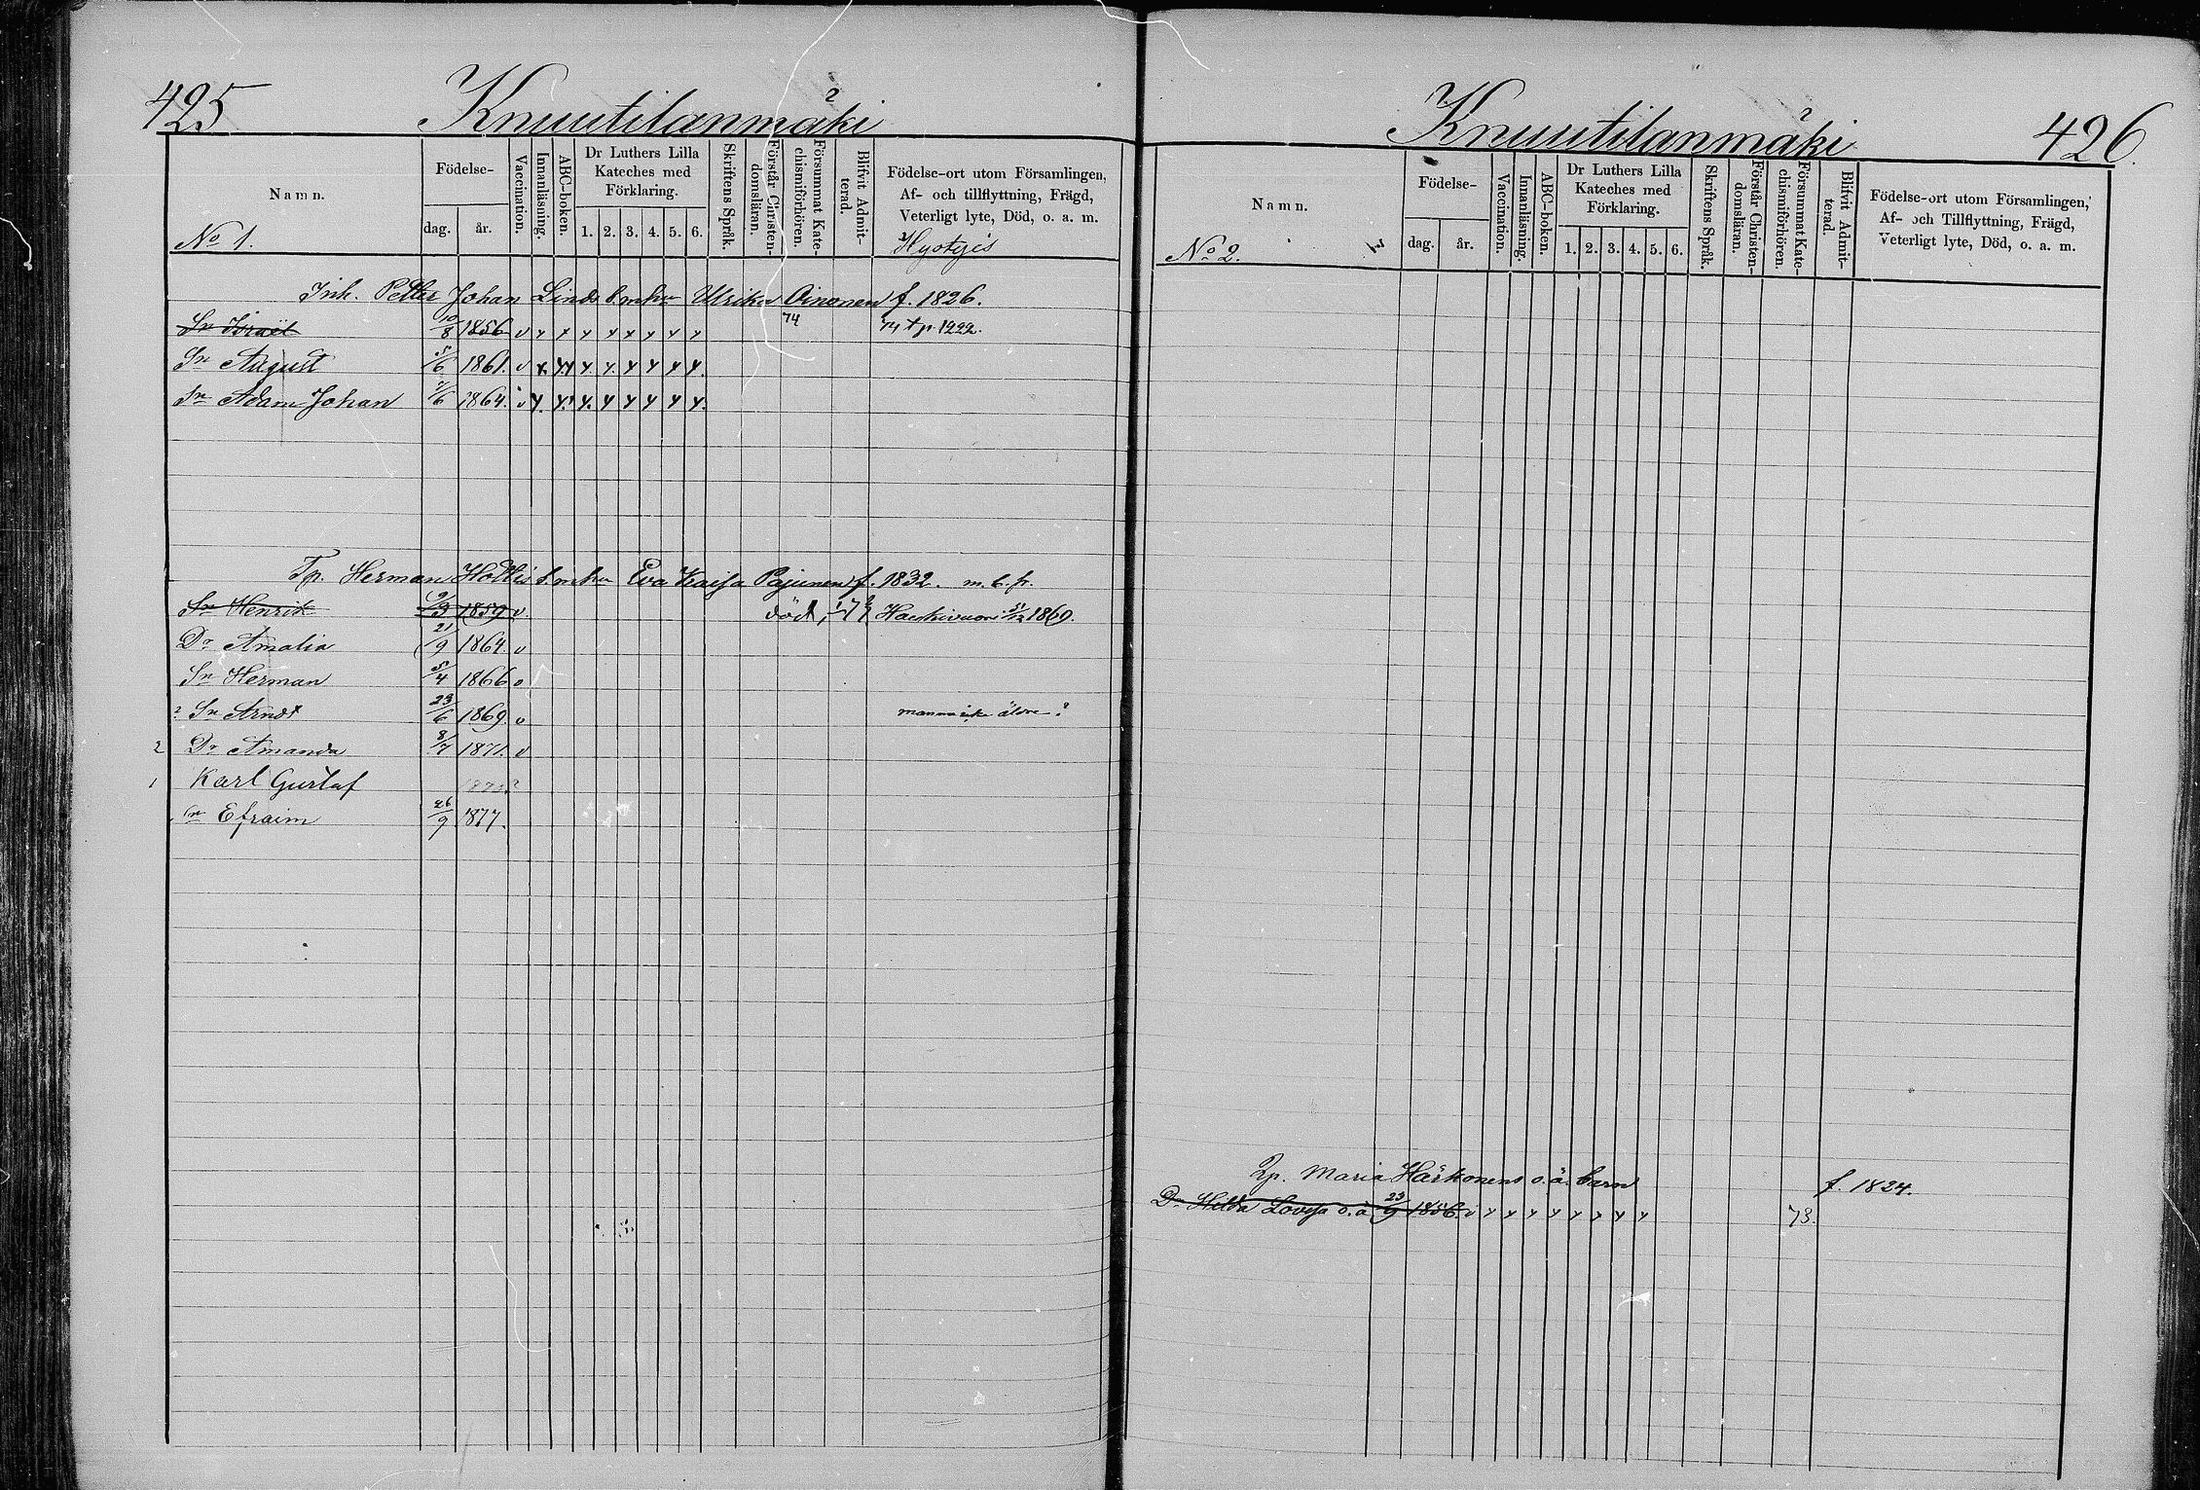 425
Knuutilanmäki
Namn.
Födelse-
dag.
år.
Vaccination.
Innanläsning.
ABC-boken.
Dr Luthers Lilla
Kateches med
Förklaring.
1. 2. 3. 4. 5. 6.
Skriftens Språk.
Förstår Christen-
domsläran.
Försummat Kate-
chismiförhören.
Blifvit Admit-
terad.
Födelse-ort utom Församlingen,
Af- och tillflyttning, Frägd,
Veterligt lyte, Död, o. a. m.
No 1.
Inh. Petter Johan Ulrika Oinonen f. 1826.
Sn Israel 10/8 1856 v y x y y y y y y 74 74 † p. 1222.
Sn August 5/6 1861. v
Sn Adam Johan 1864. v
Tp. Herman Eva Kaisa Pajunen f. 1832.
Sn Henrik 1859 v död 1869.
Dr Amalia 21/9 1864. v
Sn Herman 5/4 1866 v
Sn 23/6 1869. v
2 Dr Amanda 8/7 1871. v
1 Karl Gustaf
Sn Efraim 26/9 1877.
Knuutilanmäki
426.
Namn.
Födelse-
dag.
år.
Vaccination.
Innanläsning.
ABC-boken.
Dr Luthers Lilla
Kateches med
Förklaring.
1. 2. 3. 4. 5. 6.
Skriftens Språk.
Förstår Christen-
domsläran.
Försummat Kate-
chismiförhören.
Blifvit Admit-
terad.
Födelse-ort utom Församlingen,
Af- och Tillflyttning, Frägd,
Veterligt lyte, Död, o. a. m.
No 2.
Maria Härkonens o. ä. barn f. 1834.
Dr Hilda Lovisa o. ä 23/9 1856. v y y y y y y y y 73.